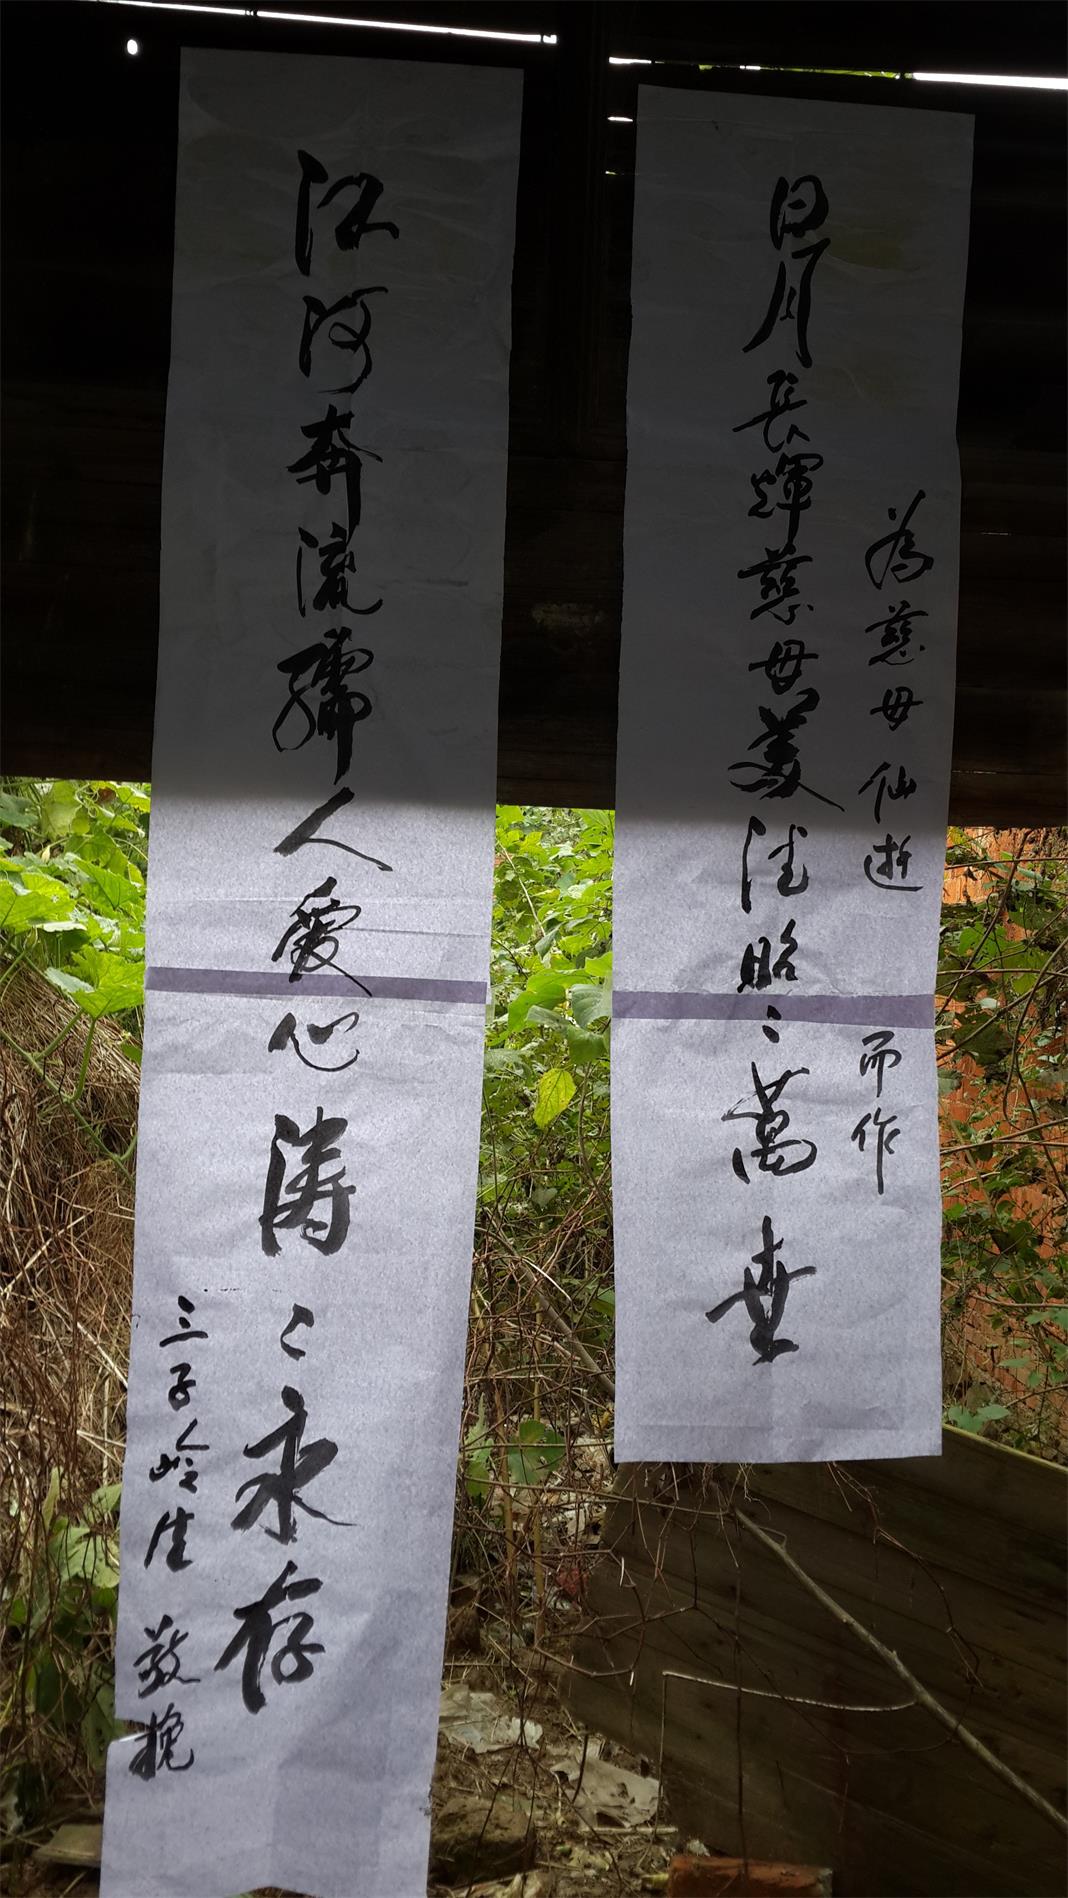 為慈母仙逝而作
日月長輝慈母美德昭〻萬世
江河奔流孺人愛心濤〻永存
三子岭生敬挽